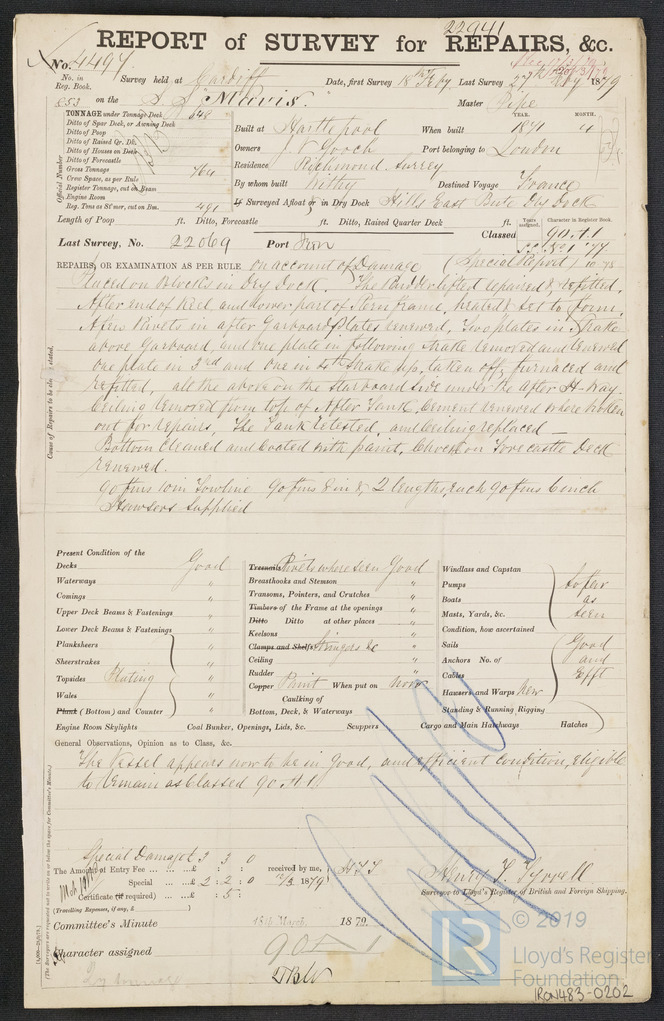 22941
REPORT of SURVEY for REPAIRS, &c.
No. 4494
No. in Reg. Book.
Survey held at Cardiff Date, first Survey 18th Feby Last Survey 27th 1879
853 on the S.S. "Mavis" Master Pope
TONNAGE under Tonnage Deck 648
Ditto of Spar Deck, or Awning Deck
Ditto of Poop
Ditto of Raised Qr. Dk.
Ditto of Houses on Deck
Ditto of Forecastle
Gross Tonnage 764
Crew Space, as per Rule
Register Tonnage, cut on Beam
Engine Room
Reg. Tons as St'mr, cut on Bm. 491
Official Number
YEAR. MONTH.
Built at Hartlepool When built 1871 4
Owners J. V. Gooch Port belonging to London
Residence Richmond Surrey
By whom built Withy Destined Voyage France
If Surveyed Afloat or in Dry Dock Hills East Bute Dry Dock
Length of Poop ft. Ditto, Forecastle ft. Ditto, Raised Quarter Deck ft.
Years assigned. Character in Register Book.
Classed 90.A1
Last Survey, No. 22069 Port
REPAIRS, OR EXAMINATION AS PER RULE on account of Damage (Special Report)
Placed on Blocks in Dry Dock. The Rudder lifted repaired & refitted,
After end of Keel, and lower part of Stern frame, heated & set to form.
A few Rivets in after Garboard Plates renewed, Two plates in Strake
above Garboard, and one plate in following Strake removed and renewed
one plate in 3rd and one in 4th Strake up, taken off, furnaced and
refitted, all the above on the Starboard side under the After H-Way.
Ceiling removed from top of After Tank, Cement renewed where broken
out for repairs, The Tank retested, and Ceiling replaced
Bottom Cleaned and Coated with paint, Chock on Forecastle Deck
renewed.
90 fms 10 in Towline 90 fms 8 in & 2 lengths each 90 fms 6 inch
Hawsers supplied
Causes of Repairs to be clearly stated.
Present Condition of the
Decks Good
Waterways "
Comings "
Upper Deck Beams & Fastenings "
Lower Deck Beams & Fastenings "
Planksheers "
Sheerstrakes "
Topsides Plating "
Wales "
Plank (Bottom) and Counter "
Treenails Rivets where seen Good
Breasthooks and Stemson "
Transoms, Pointers, and Crutches "
Timbers of the Frame at the openings "
Ditto Ditto at other places "
Keelsons "
Clamps and Shelfs Stringers &c "
Ceiling "
Rudder "
Copper Paint When put on Now
Caulking of
Bottom, Deck, & Waterways "
Windlass and Capstan
Pumps
Boats
Masts, Yards, &c.
so far as seen
Condition, how ascertained
Sails
Anchors No. of
Cables
Good and Efft
Hawsers and Warps New
Standing & Running Rigging
Engine Room Skylights Coal Bunker, Openings, Lids, &c. Scuppers Cargo and Main Hatchways Hatches
General Observations, Opinion as to Class, &c.
The Vessel appears now to be in Good, and efficient condition, eligible
to remain as Classed 90.A1.
Special Damage £ 3 3 0
The Amount of Entry Fee ... £ : : received by me,
Special ... £ 2 : 2 : 0 1879
Certificate (if required) ... £ : 5 :
(Travelling Expenses, if any, £ )
Henry F. Tyrrell
Surveyor to Lloyd's Register of British and Foreign Shipping.
Committee's Minute 18th March 1879.
Character assigned 90 A 1
© 2019
LR
Lloyd's Register
Foundation
IRON483-0202